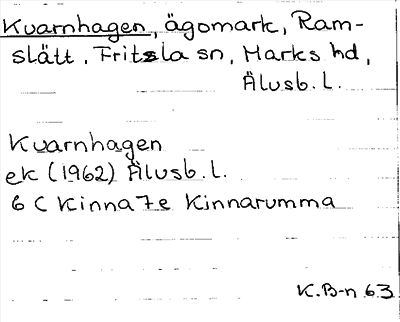 Kvarnhagen, ägomark, Ram-
slätt, Fritsla sn, Marks hd,
Älvsb. L.
Kvarnhagen
ek (1962) Älvsb. L.
6 C Kinna 7e Kinnarumma
K.B-n 63